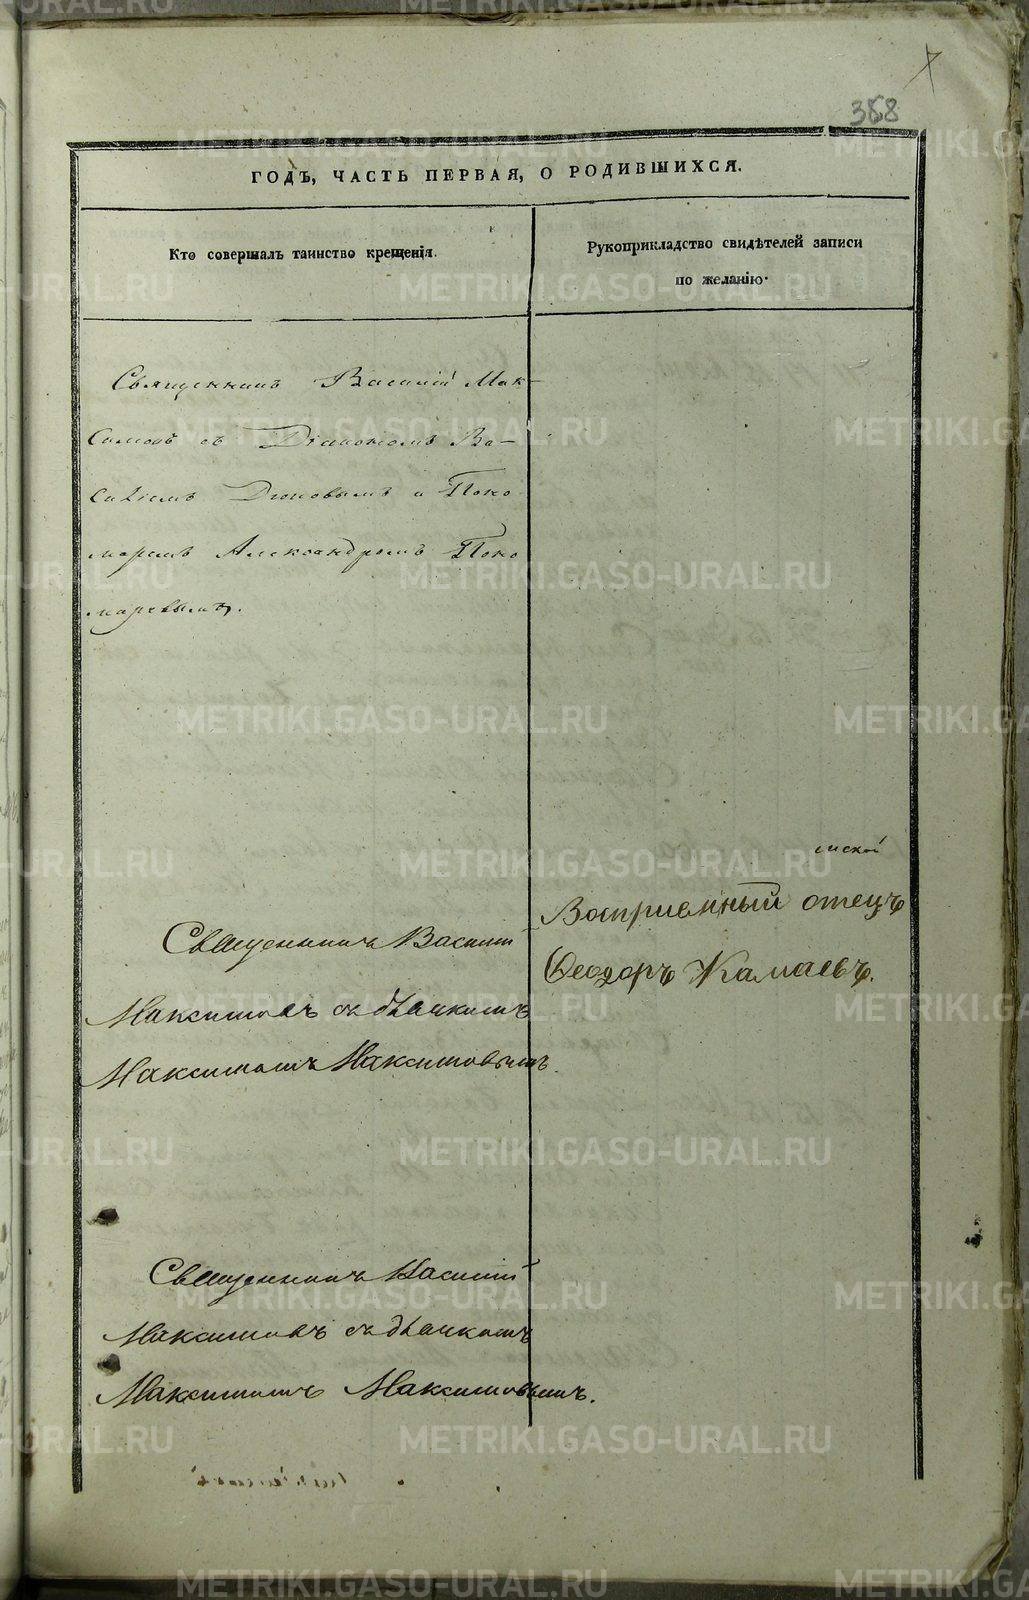 358
ГОДЪ, ЧАСТЬ ПЕРВАЯ, О РОДИВШИХСЯ.
Кто совершалъ таинство крещенія.
Рукоприкладство свидѣтелей записи
по желанію.
Священникъ Василій Мак-
симовъ съ Діакономъ Ва-
силіемъ Дюковымъ и Поно
маремъ Александромъ Поно
маревымъ.
Воспріемный отецъ
Феодоръ Камаевъ.
Священникъ Василій
Максимовъ съ дьячкомъ
Максимомъ Максимовымъ.
Священникъ Василій
Максимовъ съ дьячкомъ
Максимомъ Максимовымъ.
METRIKI.GASO-URAL.RU